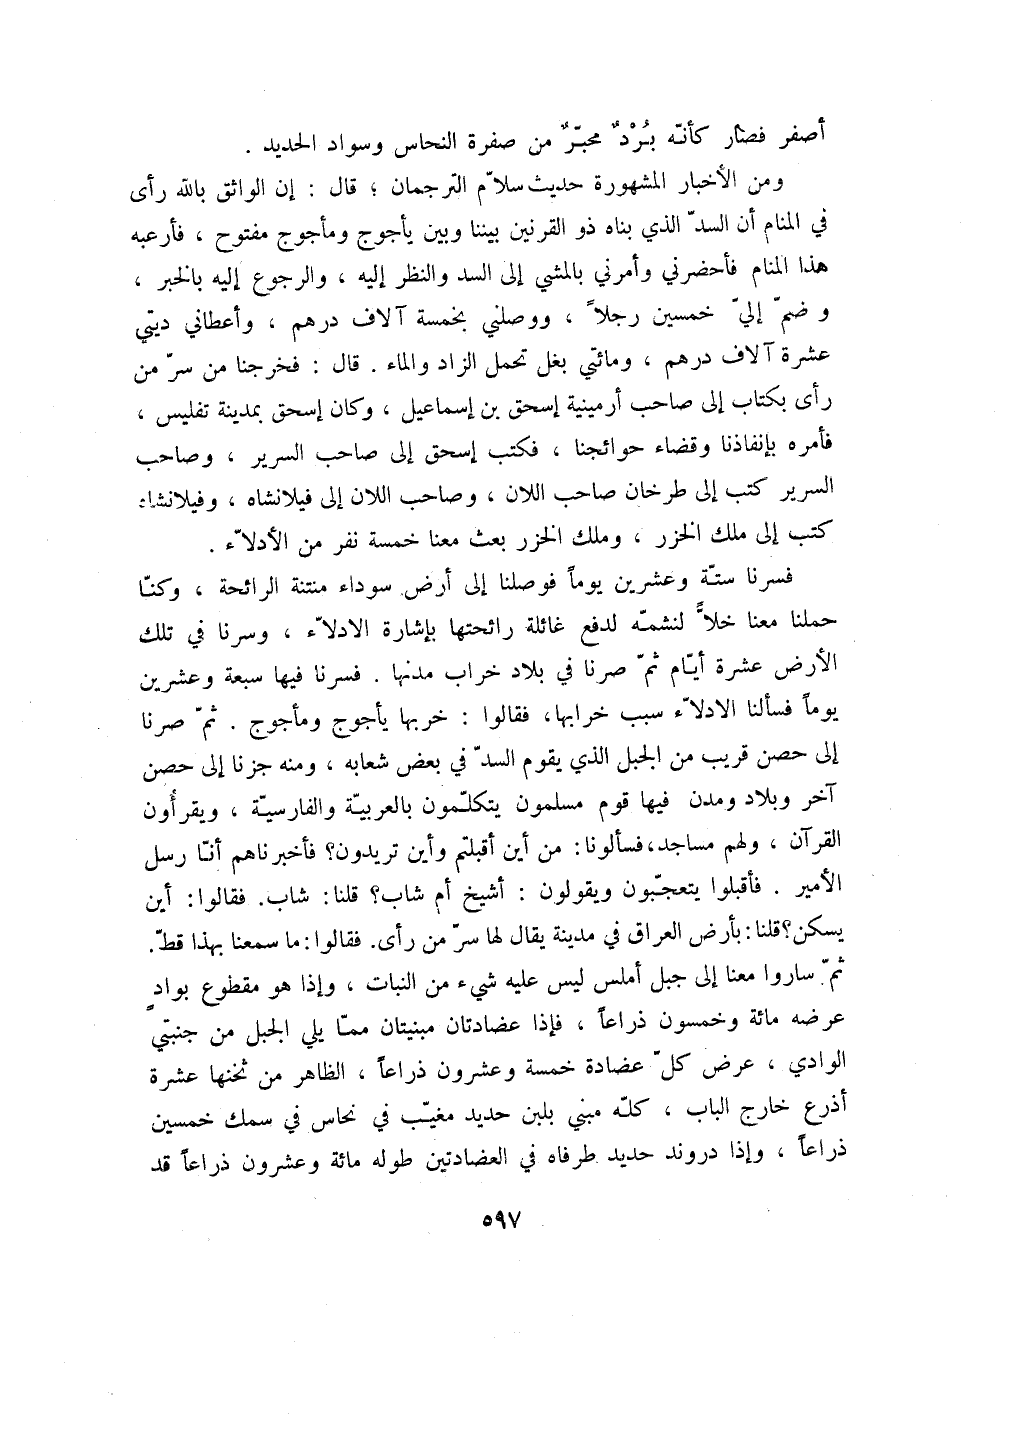 أصفر فصار كأنّه بُرْدٌ محبّرٌ من صفرة النحاس وسواد الحديد .
ومن الأخبار المشهورة حديث سلاّم الترجمان ؛ قال : إن الواثق بالله رأى
في المنام أن السدّ الذي بناه ذو القرنين بيننا وبين يأجوج ومأجوج مفتوح ، فأرعبه
هذا المنام فأحضرني وأمرني بالمشي إلى السد والنظر إليه ، والرجوع إليه بالخبر ،
و ضمّ إليّ خمسين رجلاً ، ووصلني بخمسة آلاف درهم ، وأعطاني ديتي
عشرة آلاف درهم ، ومائتي بغل تحمل الزاد والماء . قال : فخرجنا من سرّ من
رأى بكتاب إلى صاحب أرمينية إسحق بن إسماعيل ، وكان إسحق بمدينة تفليس ،
فأمره بإنفاذنا وقضاء حوائجنا ، فكتب إسحق إلى صاحب السرير ، وصاحب
السرير كتب إلى طرخان صاحب اللان ، وصاحب اللان إلى فيلانشاه ، وفيلانشاه
كتب إلى ملك الخزر ، وملك الخزر بعث معنا خمسة نفر من الأدلاّء .
فسرنا ستّة وعشرين يوماً فوصلنا إلى أرض سوداء منتنة الرائحة ، وكنّا
حملنا معنا خلاًّ لنشمّه لدفع غائلة رائحتها بإشارة الادلاّء ، وسرنا في تلك
الأرض عشرة أيّام ثمّ صرنا في بلاد خراب مدنها . فسرنا فيها سبعة وعشرين
يوماً فسألنا الادلاّء سبب خرابها، فقالوا : خربها يأجوج ومأجوج . ثمّ صرنا
إلى حصن قريب من الجبل الذي يقوم السدّ في بعض شعابه ، ومنه جزنا إلى حصن
آخر وبلاد ومدن فيها قوم مسلمون يتكلّمون بالعربيّة والفارسيّة ، ويقرأون
القرآن ، ولهم مساجد، فسألونا: من أين أقبلتم وأين تريدون؟ فأخبرناهم أنّا رسل
الأمير . فأقبلوا يتعجّبون ويقولون : أشيخ أم شاب؟ قلنا: شاب. فقالوا: أين
يسكن؟ قلنا: بأرض العراق في مدينة يقال لها سرّ من رأى. فقالوا: ما سمعنا بهذا قطّ.
ثمّ ساروا معنا إلى جبل أملس ليس عليه شيء من النبات ، وإذا هو مقطوع بوادٍ
عرضه مائة وخمسون ذراعاً ، فإذا عضادتان مبنيتان ممّا يلي الجبل من جنبتي
الوادي ، عرض كلّ عضادة خمسة وعشرون ذراعاً ، الظاهر من ثخنها عشرة
أذرع خارج الباب ، كلّه مبني بلبن حديد مغيّب في نحاس في سمك خمسين
ذراعاً ، وإذا دروند حديد طرفاه في العضادتين طوله مائة وعشرون ذراعاً قد
٥٩٧